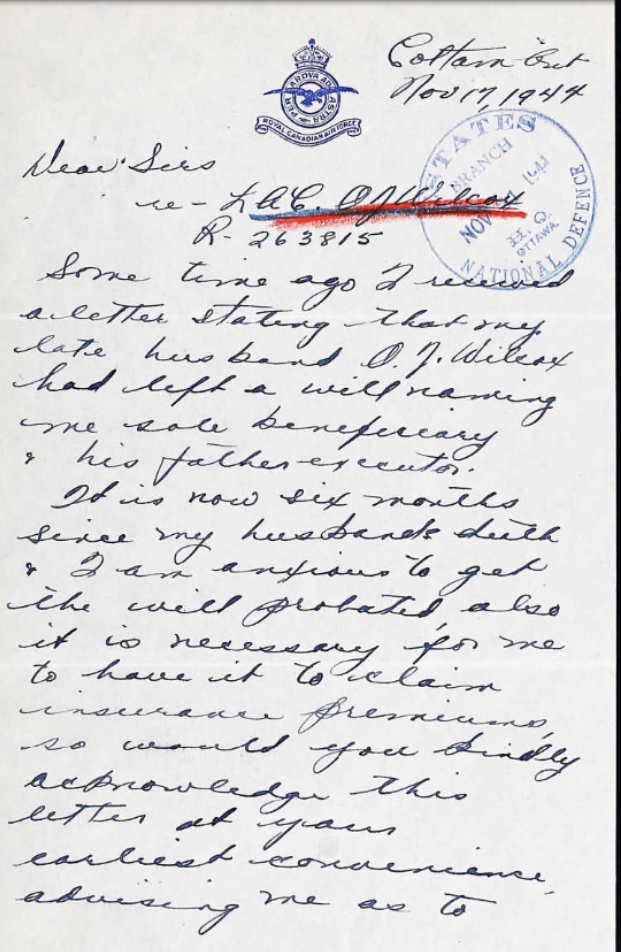 Cottam Ont
Nov 17, 1944
PER ARDVA AD ASTRA
ROYAL CANADIAN AIR FORCE
ESTATES
BRANCH
NOV 21 1944
H.Q.
OTTAWA
NATIONAL DEFENCE
Dear Sirs
re - L.A.C. O J Wilcox
R- 263815
Some time ago I received
a letter stating that my
late husband O. J. Wilcox
had left a will naming
me sole beneficiary
& his father executor.
It is now six months
since my husbands death
& I am anxious to get
the will probated, also
it is necessary for me
to have it to claim
insurance premiums,
so would you kindly
acknowledge this
letter at your
earliest convenience,
advising me as to